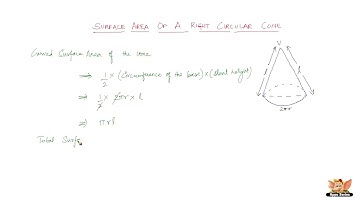 Surface Area Of A Right Circular Cone
Curved Surface Area of the cone
⇒ 1/2 × (Circumference of the base) × (Slant height)
⇒ 1/2 × 2πr × l
⇒ πrl
Total Surfa
V
l
l
2πr